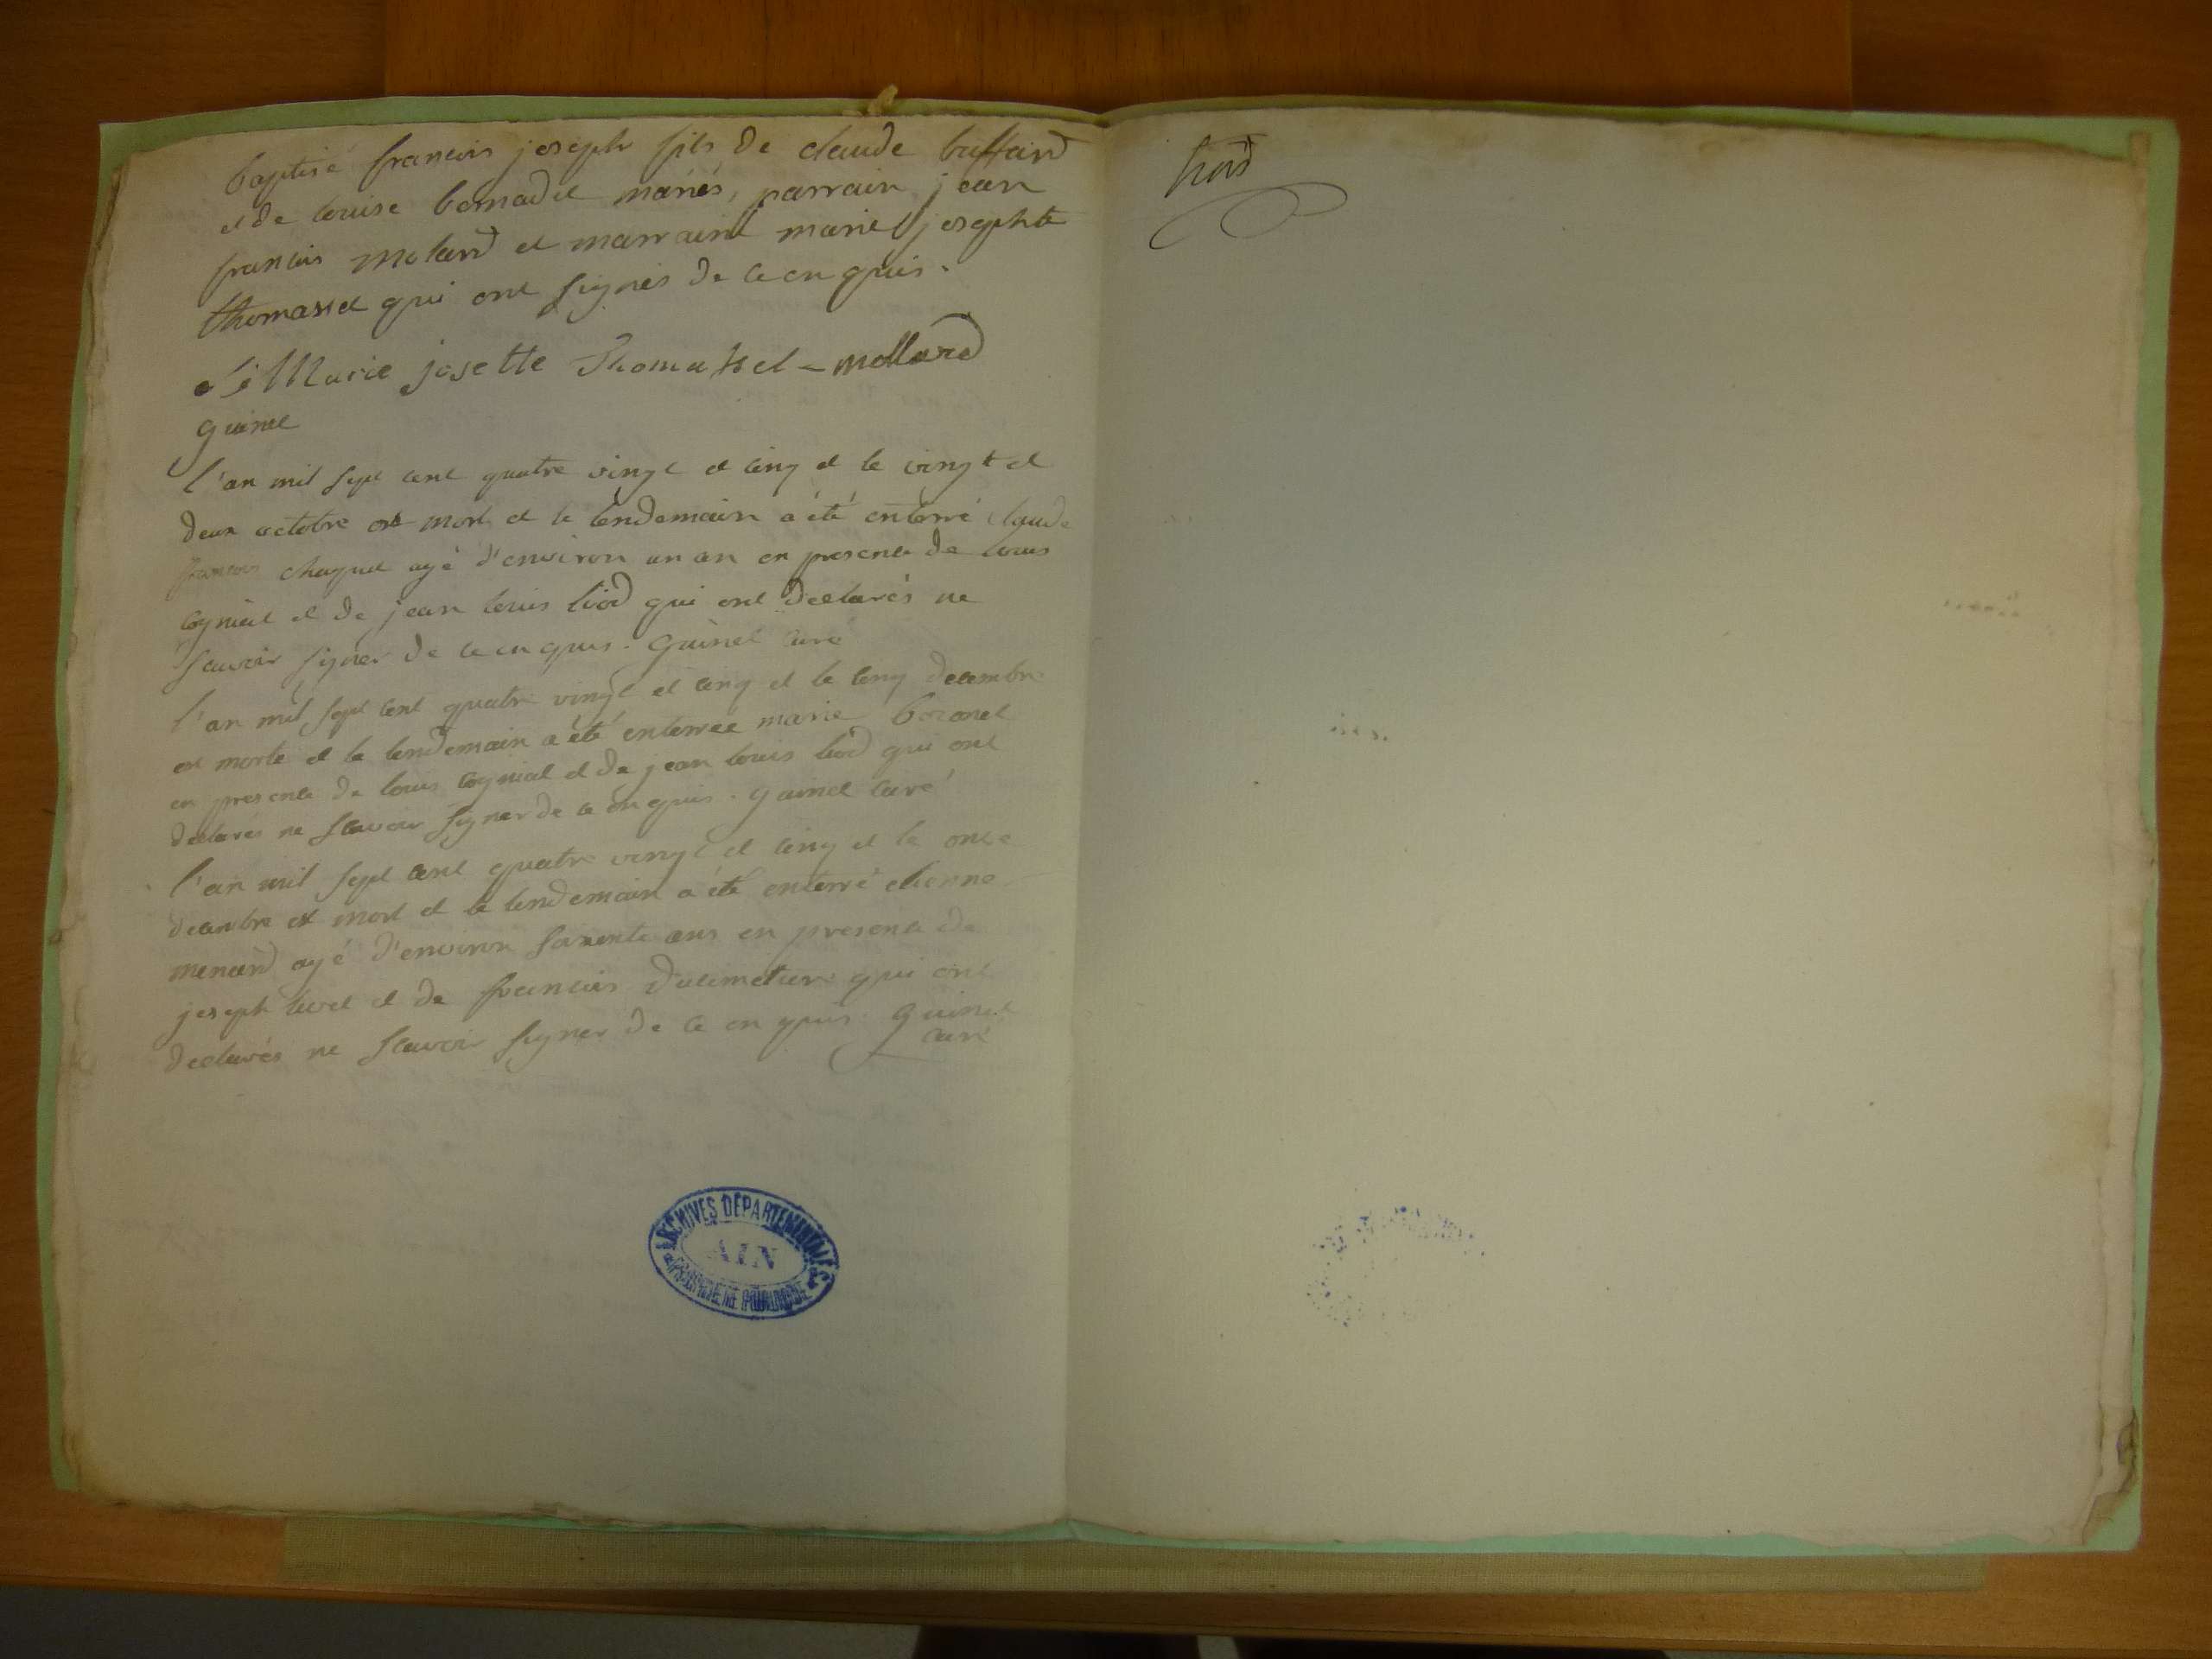 baptisé francois joseph fils de claude buffard
et de louise bernadet mariés, parrain jean
francois molard et marraine marie josephte
thomasset qui ont signés de ce enquis.
Marie josette Thomasset - mollard
guinet
l'an mil sept cent quatre vingt et cinq et le vingt et
deux octobre est mort et le lendemain a été enterré claude
francois chapuel agé d'environ un an en presence de louis
cognial et de jean louis liod qui ont declarés ne
scavoir signer de ce enquis. Guinet curé
l'an mil sept cent quatre vingt et cinq et le cinq decembre
est morte et le lendemain a été enterrée marie bozonet
en presence de louis cognial et de jean louis liod qui ont
declarés ne scavoir signer de ce enquis. guinet curé
l'an mil sept cent quatre vingt et cinq et le onze
decembre est mort et le lendemain a été enterré etienne
menard agé d'environ soixante ans en presence de
joseph livet et de francois ducimetiere qui ont
declarés ne scavoir signer de ce enquis. guinet
curé
ARCHIVES DÉPARTEMENTALES
AIN